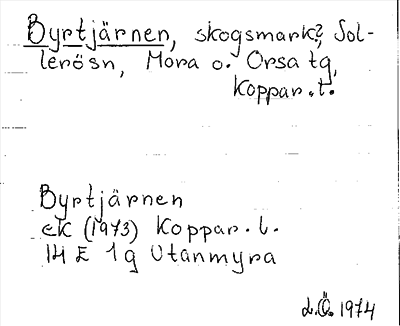 Byrtjärnen, skogsmark?, Sol-
lerösn, Mora o. Orsa tg,
Koppar. l.
Byrtjärnen
ek (1973) Koppar. l.
14 E 1g Utanmyra
L.Ö. 1974